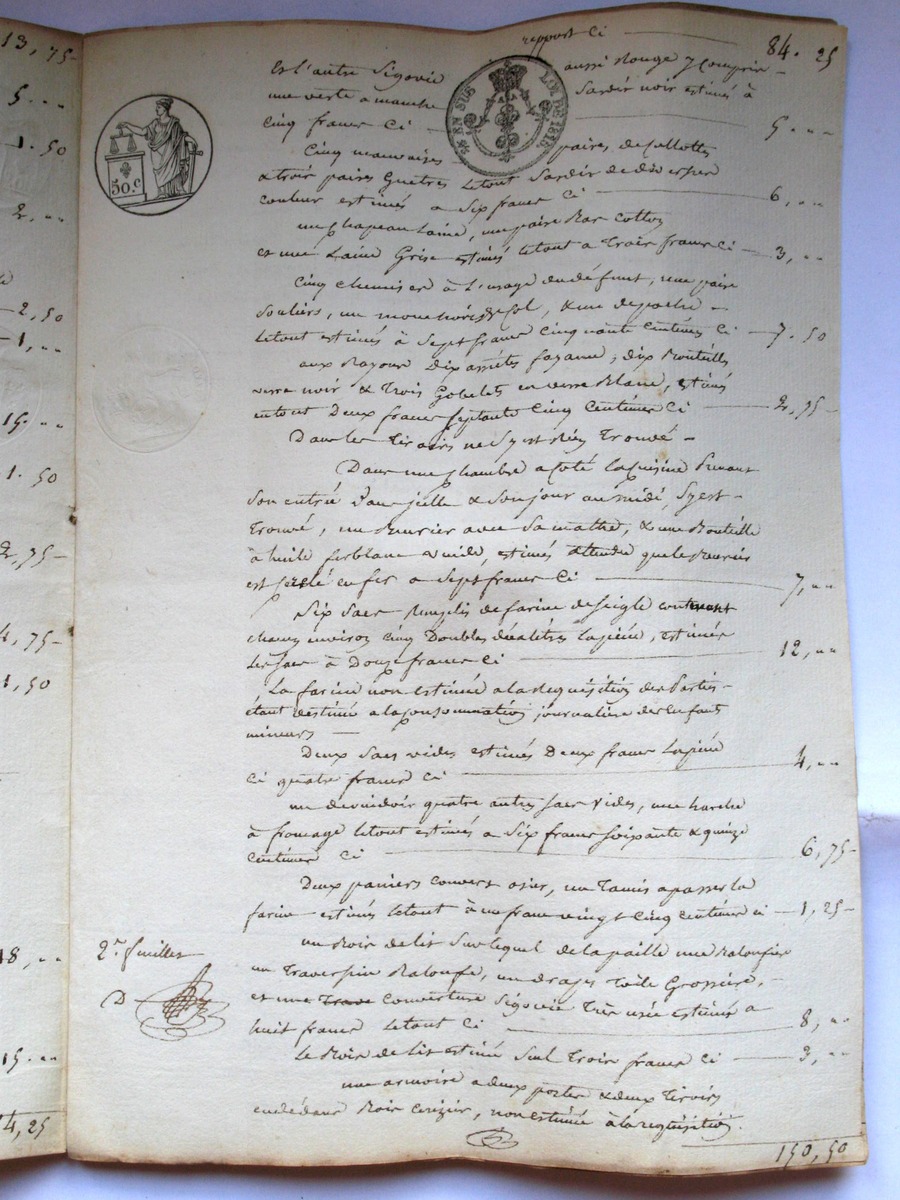 13, 75
5 . „ „
1. 50
2, „ „
2, 50
1, „ „
15. „ „
1. 50
2, 75
4, 75
1, 50
18, „ „
15. „ „
4, 25
50.c
EN SUS
LOI DE 1816
2.me feuillet
D
rapport Ci 84. 25
et l'autre Sigovie aussi Rouge y compris
une verte a manche noir estimés à
cinq francs Ci 5. „ „
Cinq mauvaises paires de Cullottes
& trois paires Guetres letout de diverses
couleur estimés a Six francs Ci 6, „ „
un Chapeau Laine, une paire Bas Cotton
et une Laine Grise estimés letout a Trois francs Ci 3, „ „
Cinq chemises à L'usage du défunt, une paire
Souliers, un , & une de poche
letout estimés à Sept francs Cinquante Centimes Ci 7. 50
aux Rayons Dix assiétes fayance, dix Bouteilles
verre noir & Trois Gobelets en verre Blanc, estimés
entout Deux francs Septante Cinq Centimes Ci 2, 75
Dans les Tiroirs ne S'y est Rien Trouvé
Dans une Chambre a Coté la Cuisine Prenant
Son entrée d'an'jcelle & Son jour au midi, S'y est
Trouvé, un avec Sa , & une Bouteille
à huile ferblanc vuide, estimés attendu que le
est en fer a Sept francs Ci 7, „ „
Six Sacs Remplis de farine de Seigle contenant
chacun environ Cinq Doubles décalitres lapièce, estimés
les Sacs à Douze francs Ci 12, „ „
La farine non estimée a la Requisition des Parties
étant destinée a la Consommation journalière des Enfants
mineurs
Deux Sacs vides estimés Deux francs Lapièce
Ci quatre francs Ci 4, „ „
un devindoir quatre autres Sacs Vides, une
à fromage letout estimés a Six francs Soixante & quinze
Centimes Ci 6, 75
Deux paniers couvert osier, un Tamis a passer la
farine estimés letout à un franc vingt Cinq Centimes Ci 1, 25
un Bois de lit Sur lequel de la paille une Baloufière
un Traverssin Baloufe, un drap Toile Grossière,
et une Couverture Sigovie Très usée estimés a
huit francs letout Ci 8, „ „
Le Bois de Lit estimé Seul Trois francs Ci 3, „ „
une armoire a deux portes & deux Tiroirs
endédans Bois Cerizier, non estimée à la requisition.
150, 50